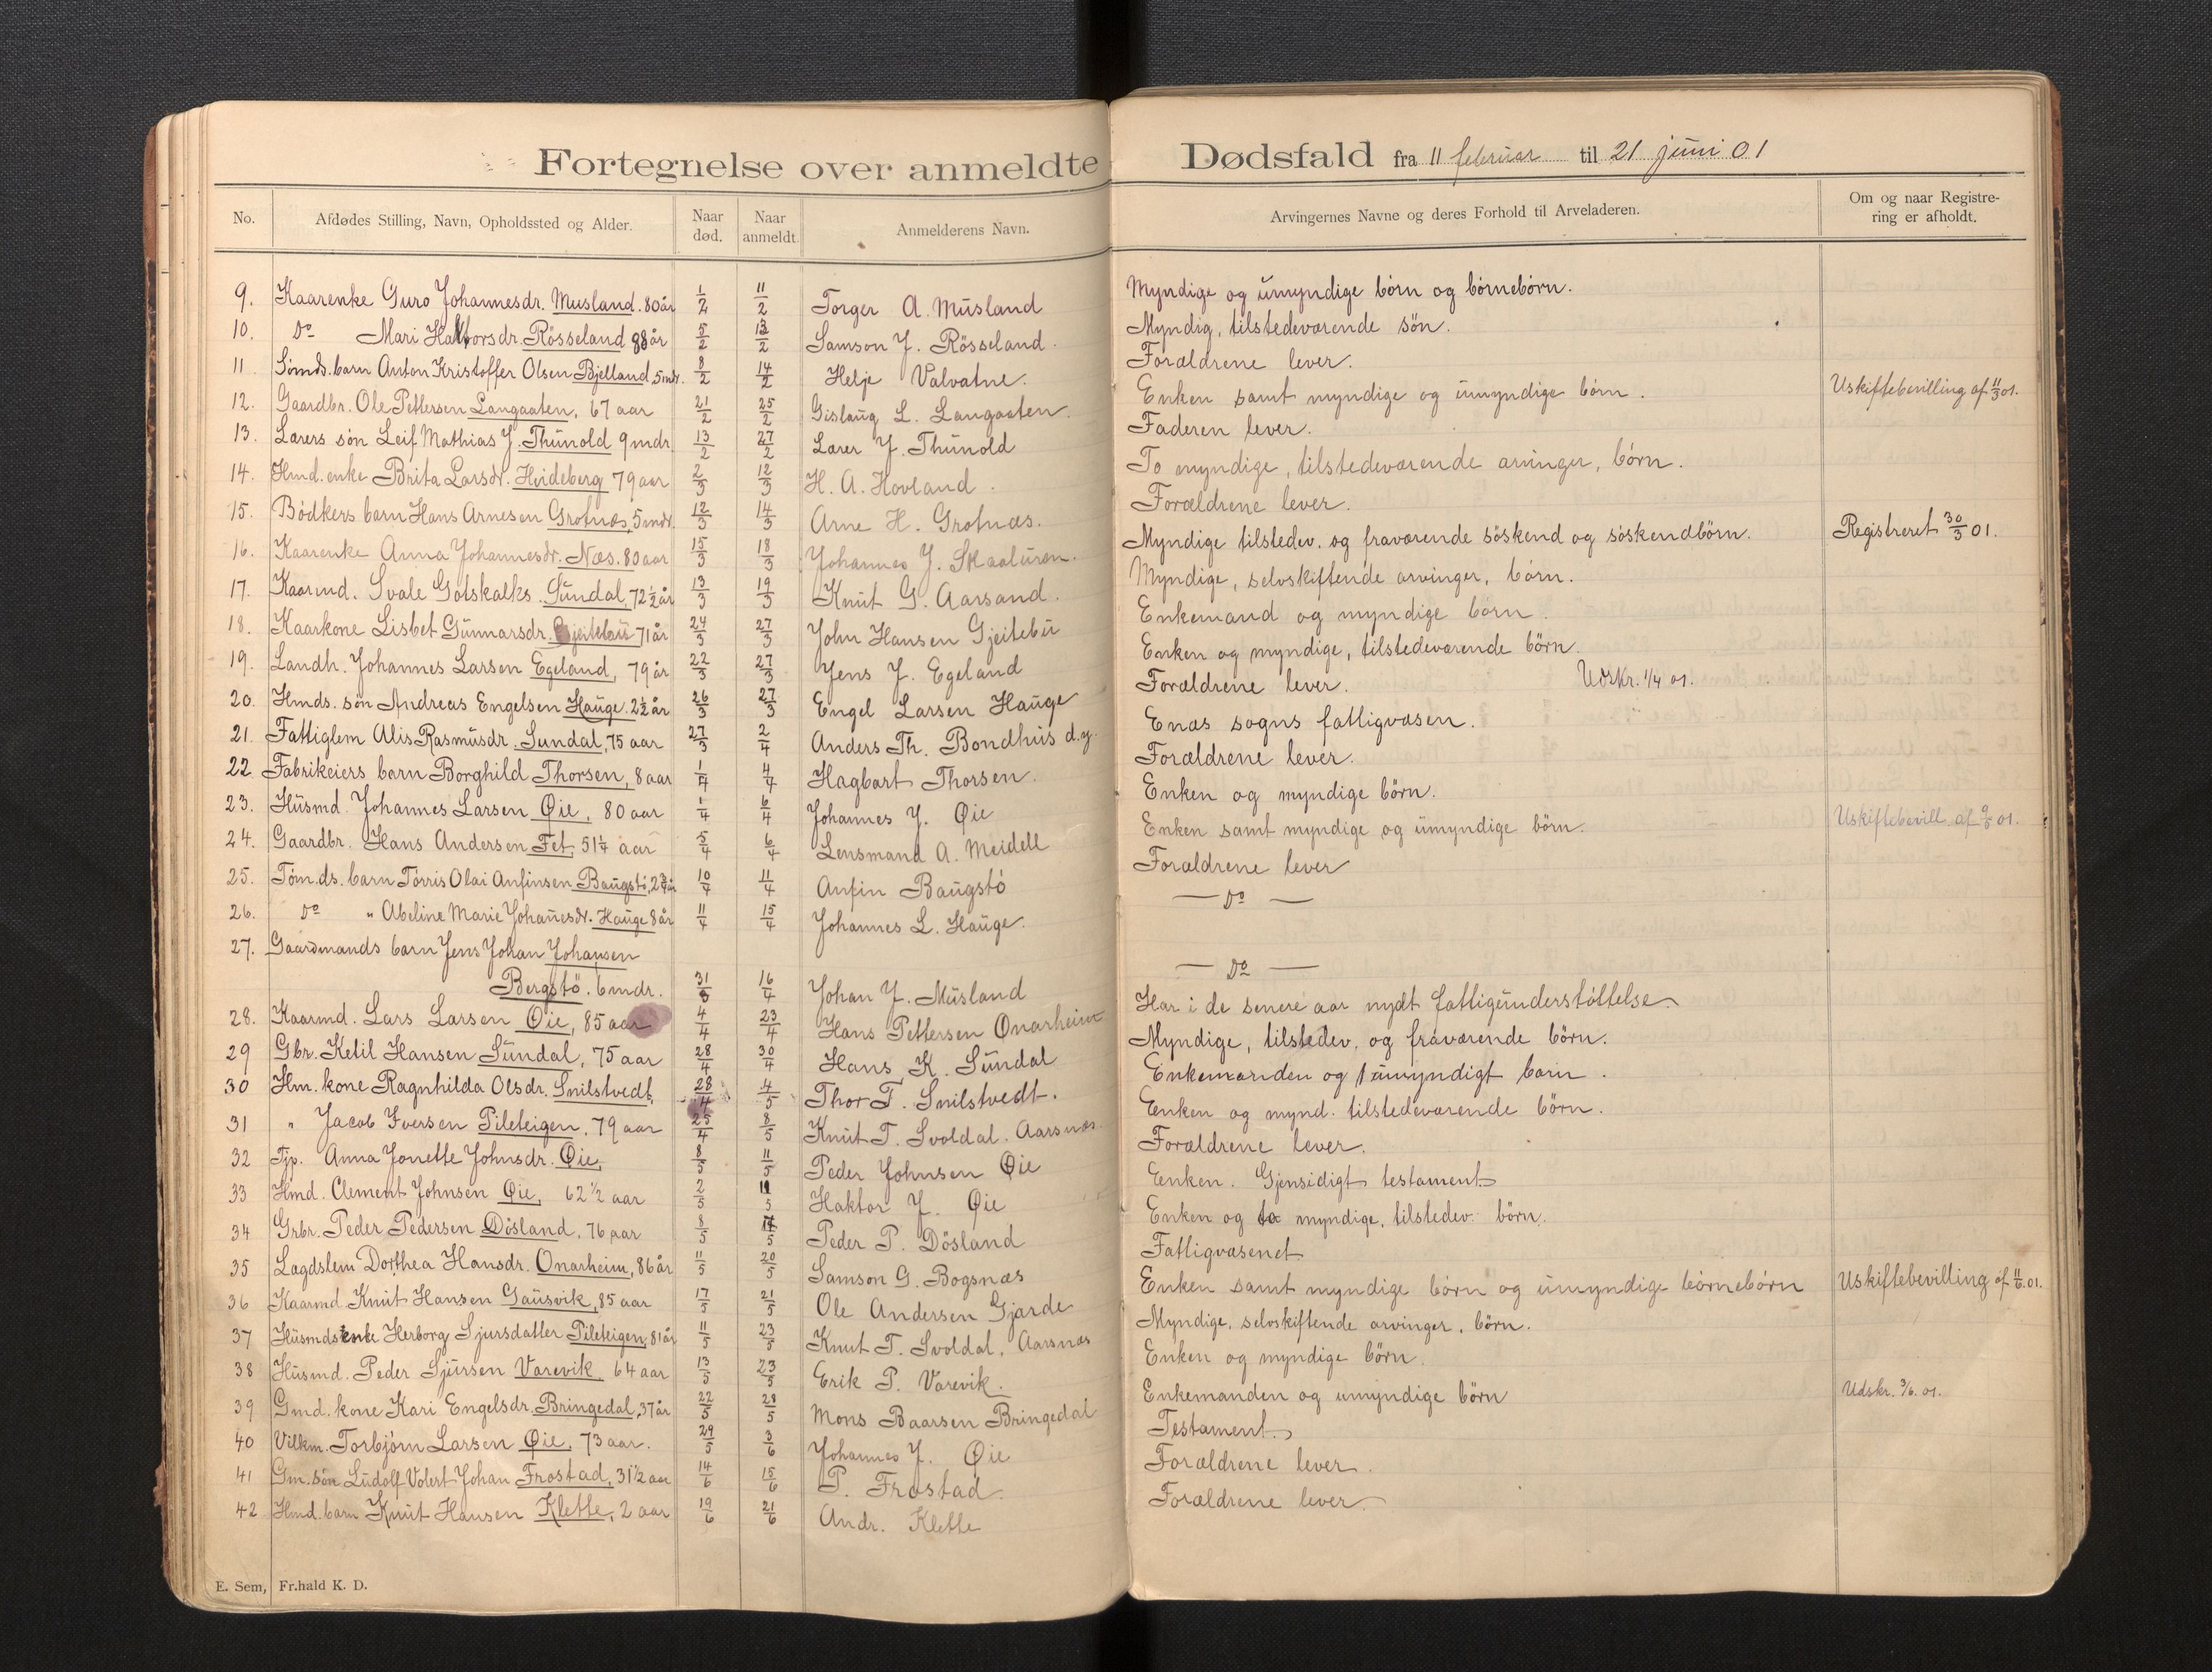 Fortegnelse over anmeldte Dødsfald fra 11 februar til 21 juni 01
No. Afdødes Stilling, Navn, Opholdssted og Alder. Naar død. Naar anmeldt. Anmelderens Navn. Arvingernes Navne og deres Forhold til Arveladeren. Om og naar Registrering er afholdt.
9. Kaarenke Guro Johannesdr. Musland. 80 år 1/2 11/2 Torger A. Musland Myndige og umyndige børn og børnebørn.
10. Do Mari Halvorsdr. Rösseland 88 år 5/2 13/2 Samson J. Rösseland. Myndig, tilstedeværende søn.
11 Sömds. barn Anton Kristoffer Olsen Bjelland, 5 mdr. 8/2 14/2 Helje Valvatne. Forældrene lever.
12. Gaardbr. Ole Pettersen Langaaten, 67 aar 21/2 25/2 Gislaug L. Langaaten. Enken samt myndige og umyndige börn. Uskiftebevilling af 11/3 01.
13. Lærers sön Leif Mathias J. Thunold 9 mdr. 13/2 27/2 Lærer J. Thunold Faderen lever.
14. Hmd. enke Brita Larsdr. Hvideberg 79 aar 2/3 12/3 H. A. Hovland. To myndige, tilstedeværende arvinger, börn.
15. Bödkers barn Hans Arnesen Grotnæs, 5 mdr. 12/3 14/3 Arne H. Grotnæs. Forældrene lever.
16. Kaarenke Anna Johannesdr. Næs. 80 aar 15/3 18/3 Johannes J. Skaaluren. Myndige tilstedev. og fraværende söskend og söskendbörn. Registreret 30/3 01.
17. Kaarmd. Svale Gotskalks. Sundal, 72½ år 13/3 19/3 Knut G. Aarsand. Myndige, selvskiftende arvinger, börn.
18. Kaarkone Lisbet Gunnarsdr. Gjeitebu 71 år 24/3 27/3 John Hansen Gjeitebu Enkemand og myndige börn.
19. Landh. Johannes Larsen Egeland, 79 år 22/3 27/3 Jens J. Egeland Enken og myndige, tilstedeværende börn.
20. Hmds. sön Andreas Engelsen Hauge. 2½ år 26/3 27/3 Engel Larsen Hauge Forældrene lever. Udskr. 1/4 01.
21. Fattiglem Alis Rasmusdr. Sundal, 75 aar 27/3 2/4 Anders Th. Bondhus d.y. Enæs sogns fattigvæsen.
22. Fabrikeiers barn Borghild Thorsen, 8 aar 1/4 4/4 Hagbart Thorsen. Forældrene lever.
23. Husmd. Johannes Larsen Øie, 80 aar 1/4 6/4 Johannes J. Øie Enken og myndige börn.
24. Gaardbr. Hans Andersen Fet, 51¼ aar 5/4 6/4 Lensmand A. Meidell Enken samt myndige og umyndige börn. Uskiftebevill. af 9/5 01.
25. Töm.ds. barn Torris Olai Anfinsen Baugstö, 2¾ år 10/4 11/4 Anfin Baugstö Forældrene lever
26. Do " Abeline Marie Johanesdr. Hauge 8 år 11/4 15/4 Johannes L. Hauge. — Do —
27. Gaardmands barn Jens Johan Johansen
Bergstö. 6 mdr. 31/3 16/4 Johan J. Musland — Do —
28. Kaarmd. Lars Larsen Øie, 85 aar 4/4 23/4 Hans Pettersen Onarheim Har i de senere aar nydt fattigunderstöttelse.
29 Gbr. Ketil Hansen Sundal, 75 aar 28/4 30/4 Hans K. Sundal Myndige, tilstedev. og fraværende börn.
30 Hm. kone Ragnhilda Olsdr. Snilstvedt. 28/4 4/5 Thor T. Snilstvedt. Enkemanden og 1 umyndigt barn.
31 " Jacob Iversen Pileteigen, 79 aar 25/4 8/5 Knut T. Svoldal. Aarsnæs. Enken og mynd. tilstedeværende börn.
32 Tjp. Anna Jonette Johnsdr. Øie, 8/5 11/5 Peder Johnsen Øie Forældrene lever.
33 Hmd. Clement Johnsen Øie, 62½ aar 2/5 11/5 Haktor J. Øie Enken. Gjensidigt testament
34 Grbr. Peder Pedersen Dösland, 76 aar 8/5 17/5 Peder P. Dösland Enken og to myndige, tilstedev. börn.
35 Lægdslem Dorthea Hansdr. Onarheim, 86 år 11/5 20/5 Samson G. Bogsnæs Fattigvæsenet
36 Kaarmd. Knut Hansen Gausvik, 85 aar 17/5 21/5 Ole Andersen Gjærde Enken samt myndige börn og umyndige börnebörn Uskiftebevilling af 11/6 01.
37 Husmdsenke Herborg Sjursdatter Pileteigen, 81 år 11/5 23/5 Knut T. Svoldal, Aarsnæs Myndige, selvskiftende arvinger, börn.
38 Husmd. Peder Sjursen Varevik 64 aar 13/5 23/5 Erik P. Varevik. Enken og myndige börn.
39 Gmd. kone Kari Engelsdr. Bringedal, 37 år 22/5 28/5 Mons Baarsen Bringedal Enkemanden og umyndige börn Udskr. 3/6. 01.
40 Vilkm. Torbjörn Larsen Øie, 73 aar. 29/5 3/6 Johannes J. Øie Testament.
41 Gm. sön Ludolf Volert Johan Frostad, 31½ aar 14/6 15/6 P. Frostad. Forældrene lever.
42 Hmd. barn Knut Hansen Klette, 2 aar 19/6 21/6 Andr. Klette Forældrene lever.
E. Sem, Fr.hald K. D.